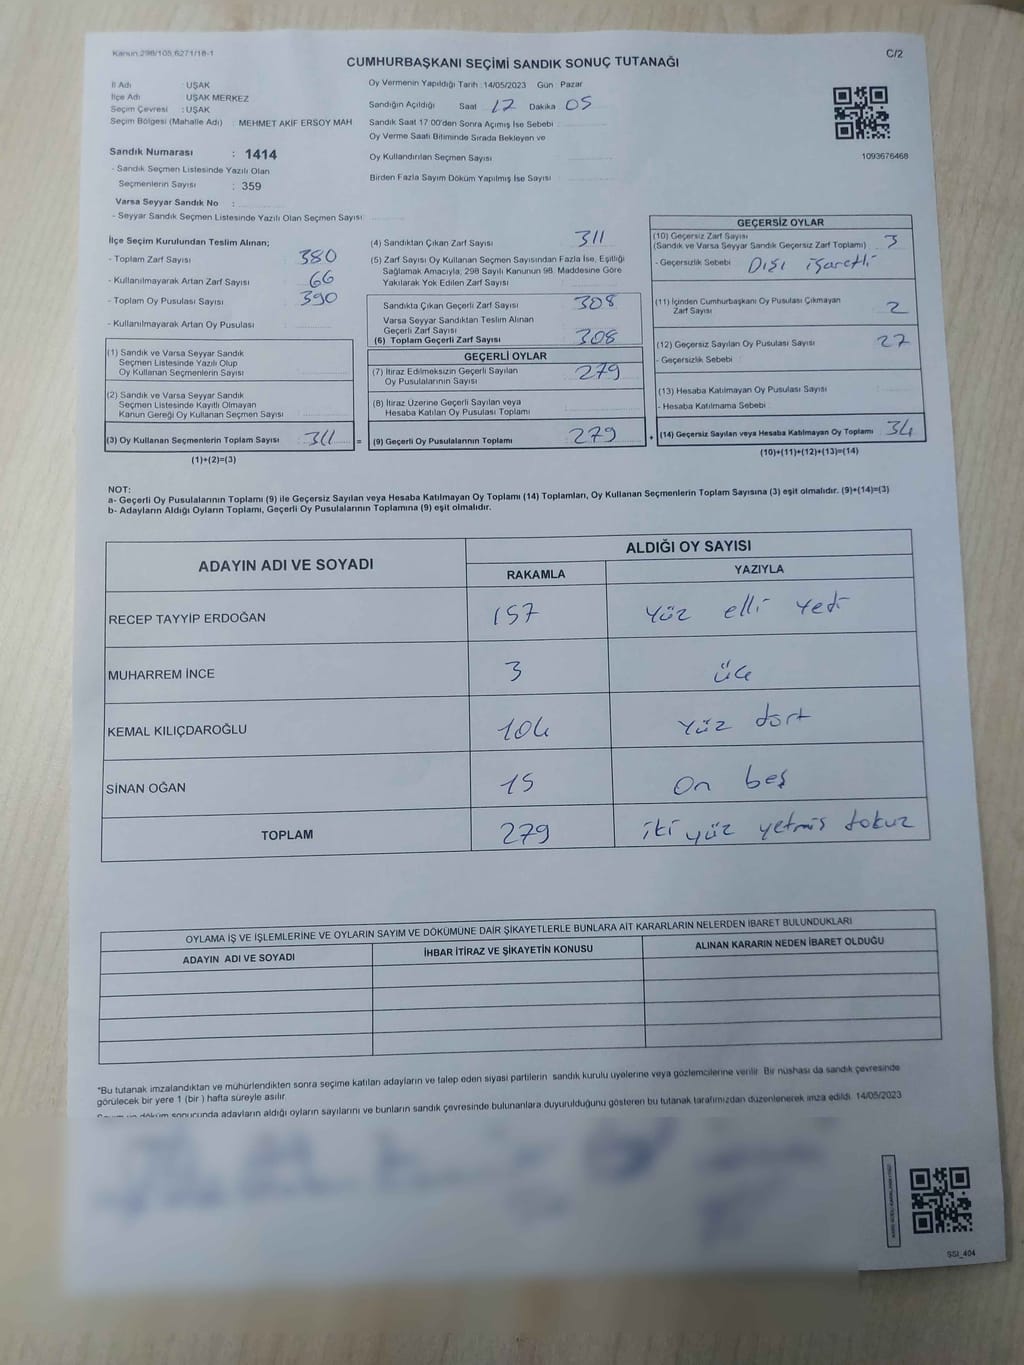 Kanun.298/105,6271/18-1
C/2
CUMHURBAŞKANI SEÇİMİ SANDIK SONUÇ TUTANAĞI
İl Adı : UŞAK
İlçe Adı : UŞAK MERKEZ
Seçim Çevresi : UŞAK
Seçim Bölgesi (Mahalle Adı) : MEHMET AKİF ERSOY MAH
Sandık Numarası : 1414
- Sandık Seçmen Listesinde Yazılı Olan
Seçmenlerin Sayısı : 359
Varsa Seyyar Sandık No :
- Seyyar Sandık Seçmen Listesinde Yazılı Olan Seçmen Sayısı:
Oy Vermenin Yapıldığı Tarih :14/05/2023 Gün : Pazar
Sandığın Açıldığı Saat 17 Dakika 05
Sandık Saat 17:00'den Sonra Açımış İse Sebebi :
Oy Verme Saati Bitiminde Sırada Bekleyen ve
Oy Kullandırılan Seçmen Sayısı
Birden Fazla Sayım Döküm Yapılmış İse Sayısı :
1093676468
İlçe Seçim Kurulundan Teslim Alınan;
- Toplam Zarf Sayısı : 380
- Kullanılmayarak Artan Zarf Sayısı : 66
- Toplam Oy Pusulası Sayısı : 390
- Kullanılmayarak Artan Oy Pusulası :
(1) Sandık ve Varsa Seyyar Sandık
Seçmen Listesinde Yazılı Olup
Oy Kullanan Seçmenlerin Sayısı :
(2) Sandık ve Varsa Seyyar Sandık
Seçmen Listesinde Kayıtlı Olmayan
Kanun Gereği Oy Kullanan Seçmen Sayısı :
(3) Oy Kullanan Seçmenlerin Toplam Sayısı : 311 =
(1)+(2)=(3)
(4) Sandıktan Çıkan Zarf Sayısı : 311
(5) Zarf Sayısı Oy Kullanan Seçmen Sayısından Fazla İse, Eşitliği
Sağlamak Amacıyla; 298 Sayılı Kanunun 98. Maddesine Göre
Yakılarak Yok Edilen Zarf Sayısı :
Sandıkta Çıkan Geçerli Zarf Sayısı : 308
Varsa Seyyar Sandıktan Teslim Alınan
Geçerli Zarf Sayısı :
(6) Toplam Geçerli Zarf Sayısı : 308
GEÇERLİ OYLAR
(7) İtiraz Edilmeksizin Geçerli Sayılan
Oy Pusulalarının Sayısı : 279
(8) İtiraz Üzerine Geçerli Sayılan veya
Hesaba Katılan Oy Pusulası Toplamı :
(9) Geçerli Oy Pusulalarının Toplamı : 279 +
GEÇERSİZ OYLAR
(10) Geçersiz Zarf Sayısı
(Sandık ve Varsa Seyyar Sandık Geçersiz Zarf Toplamı) : 3
- Geçersizlik Sebebi : Dışı işaretli
(11) İçinden Cumhurbaşkanı Oy Pusulası Çıkmayan
Zarf Sayısı : 2
(12) Geçersiz Sayılan Oy Pusulası Sayısı : 27
- Geçersizlik Sebebi :
(13) Hesaba Katılmayan Oy Pusulası Sayısı :
- Hesaba Katılmama Sebebi :
(14) Geçersiz Sayılan veya Hesaba Katılmayan Oy Toplamı : 34
(10)+(11)+(12)+(13)=(14)
NOT:
a- Geçerli Oy Pusulalarının Toplamı (9) ile Geçersiz Sayılan veya Hesaba Katılmayan Oy Toplamı (14) Toplamları, Oy Kullanan Seçmenlerin Toplam Sayısına (3) eşit olmalıdır. (9)+(14)=(3)
b- Adayların Aldığı Oyların Toplamı, Geçerli Oy Pusulalarının Toplamına (9) eşit olmalıdır.
ADAYIN ADI VE SOYADI
ALDIĞI OY SAYISI
RAKAMLA YAZIYLA
RECEP TAYYİP ERDOĞAN 157 yüz elli yedi
MUHARREM İNCE 3 üç
KEMAL KILIÇDAROĞLU 104 yüz dört
SİNAN OĞAN 15 On beş
TOPLAM 279 iki yüz yetmiş dokuz
OYLAMA İŞ VE İŞLEMLERİNE VE OYLARIN SAYIM VE DÖKÜMÜNE DAİR ŞİKAYETLERLE BUNLARA AİT KARARLARIN NELERDEN İBARET BULUNDUKLARI
ADAYIN ADI VE SOYADI
İHBAR İTİRAZ VE ŞİKAYETİN KONUSU
ALINAN KARARIN NEDEN İBARET OLDUĞU
*Bu tutanak imzalandıktan ve mühürlendikten sonra seçime katılan adayların ve talep eden siyasi partilerin sandık kurulu üyelerine veya gözlemcilerine verilir. Bir nüshası da sandık çevresinde
görülecek bir yere 1 (bir ) hafta süreyle asılır.
döküm sonucunda adayların aldığı oyların sayılarını ve bunların sandık çevresinde bulunanlara duyurulduğunu gösteren bu tutanak tarafımızdan düzenlenerek imza edildi. 14/05/2023
SSI_404